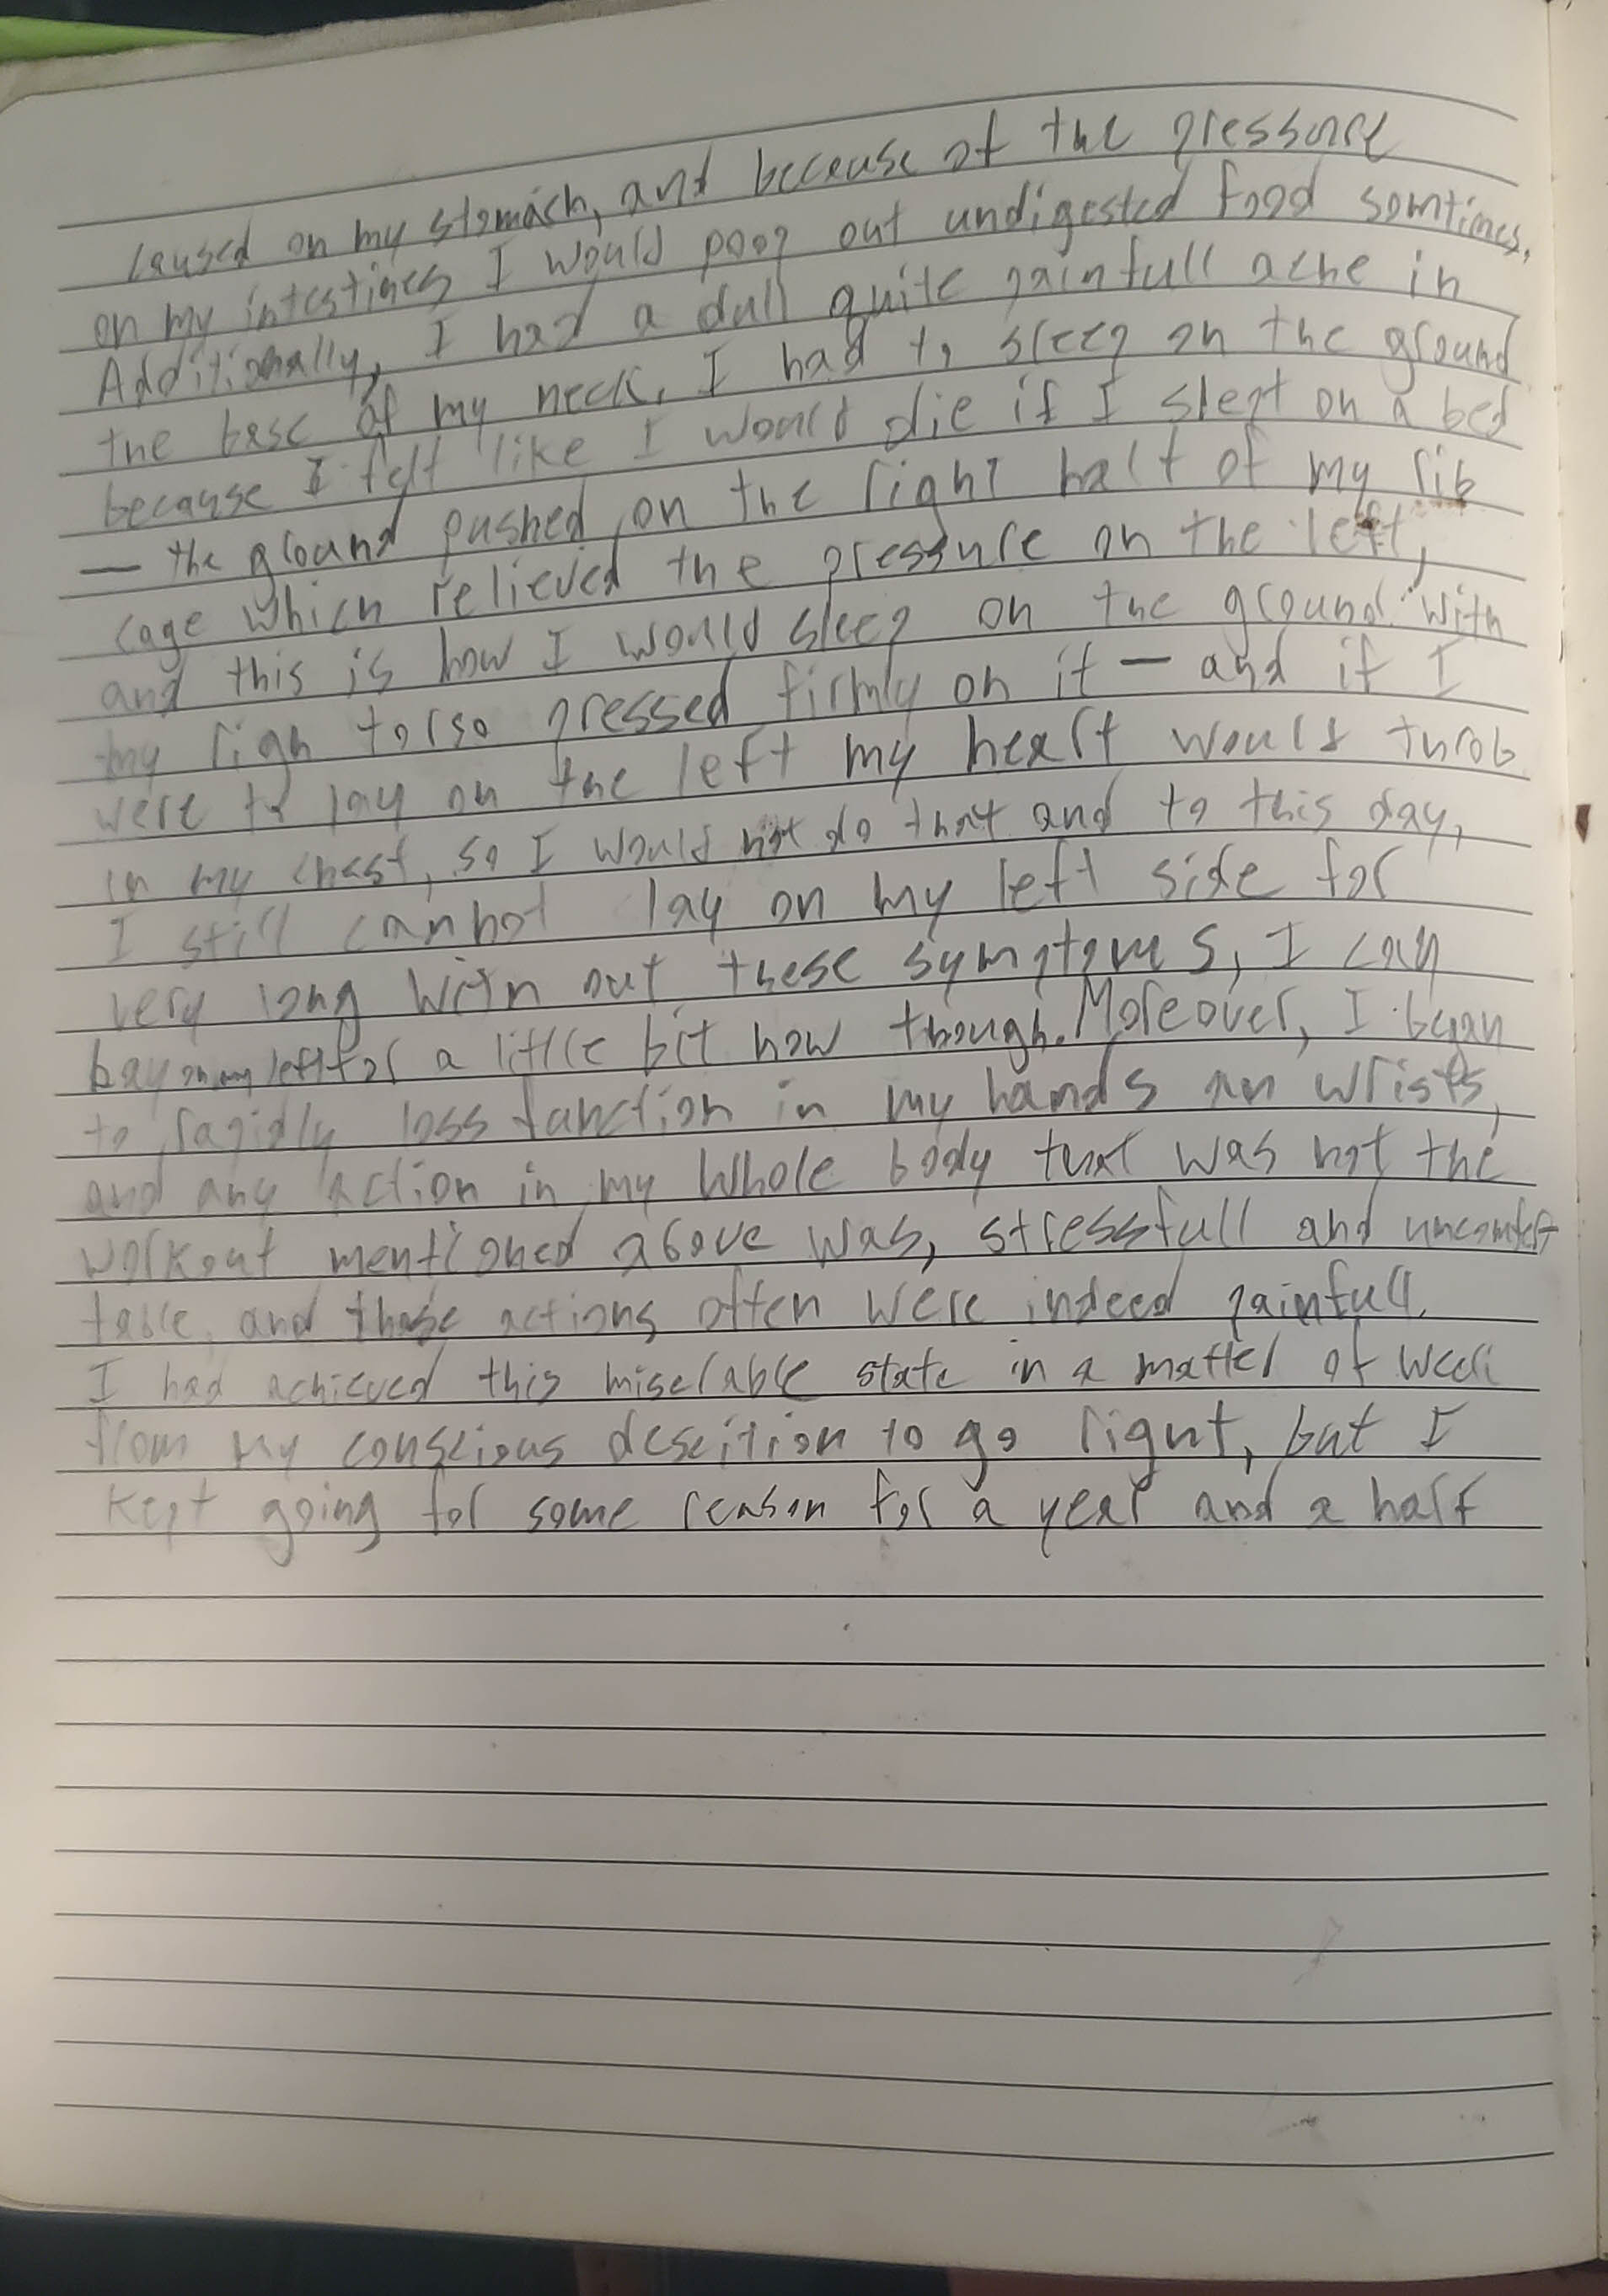 caused on my stomach, and because of the pressure
on my intestines I would poop out undigested food somtimes.
Additionally, I had a dull quite painfull ache in
the base of my neck. I had to sleep on the ground
because I felt like I would die if I slept on a bed
— the ground pushed on the right half of my rib
cage which relieved the pressure on the left,
and this is how I would sleep on the ground with
my righ torso pressed firmly on it — and if I
were to lay on the left my heart would throb
in my chest, so I would not do that and to this day,
I still cannot lay on my left side for
very long with out these symptoms, I can
bay on my left for a little bit now though. Moreover, I began
to rapidly loss function in my hands an wrists,
and any action in my whole body that was not the
workout mentioned above was, stressfull and uncomfort
table, and those actions often were indeed painfull.
I had achieved this miserable state in a matter of week
from my conscious descition to go right, but I
kept going for some reason for a year and a half